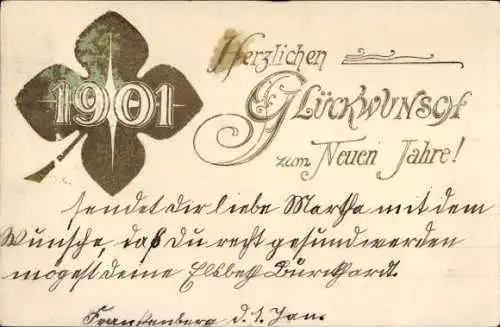 1901
Herzlichen
Glückwunsch
zum Neuen Jahre!
sendet dir liebe Martha mit dem
Wunsche, daß Du recht gesund werden
mögest deine Elsbeth Burckhardt.
Frankenberg d. 1. Jan.